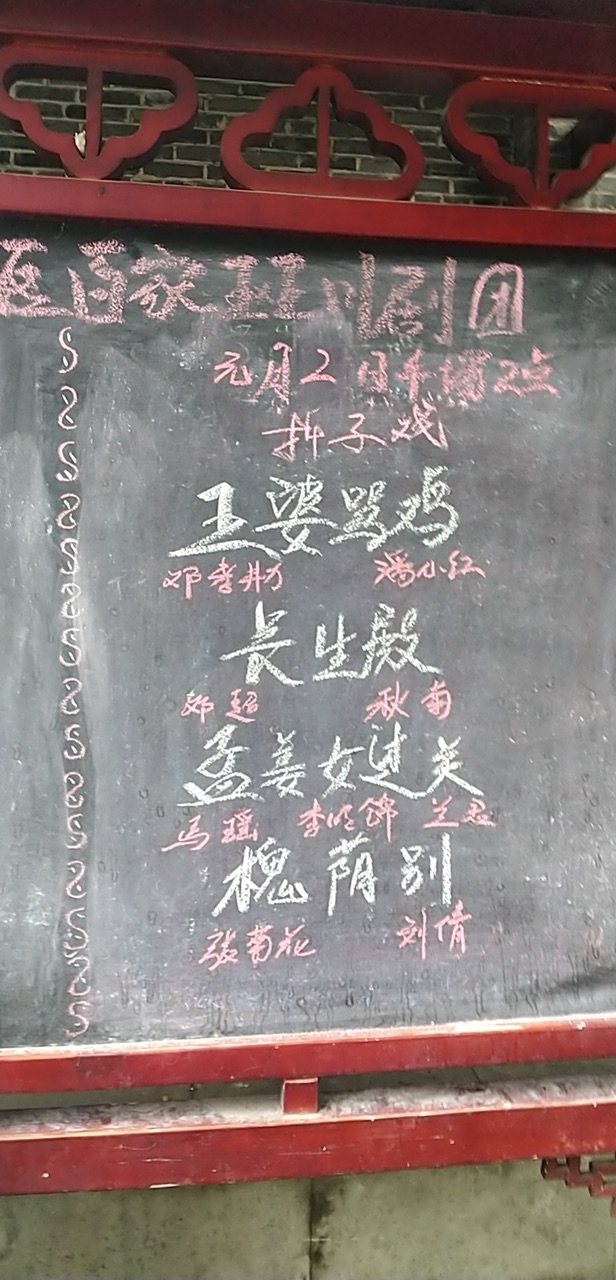 百家班川剧团
元月2日午后2点
折子戏
王婆骂鸡
邓孝 潘小红
长生殿
郑超 秋南
孟姜女过关
马瑶 李 锦 兰君
槐荫别
张菊花 刘倩